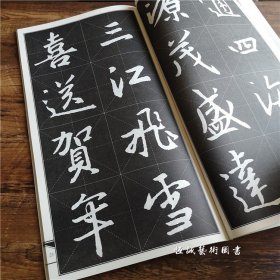 通四海
源茂盛達
三江飛雪
喜送賀年
墨城藝術圖書